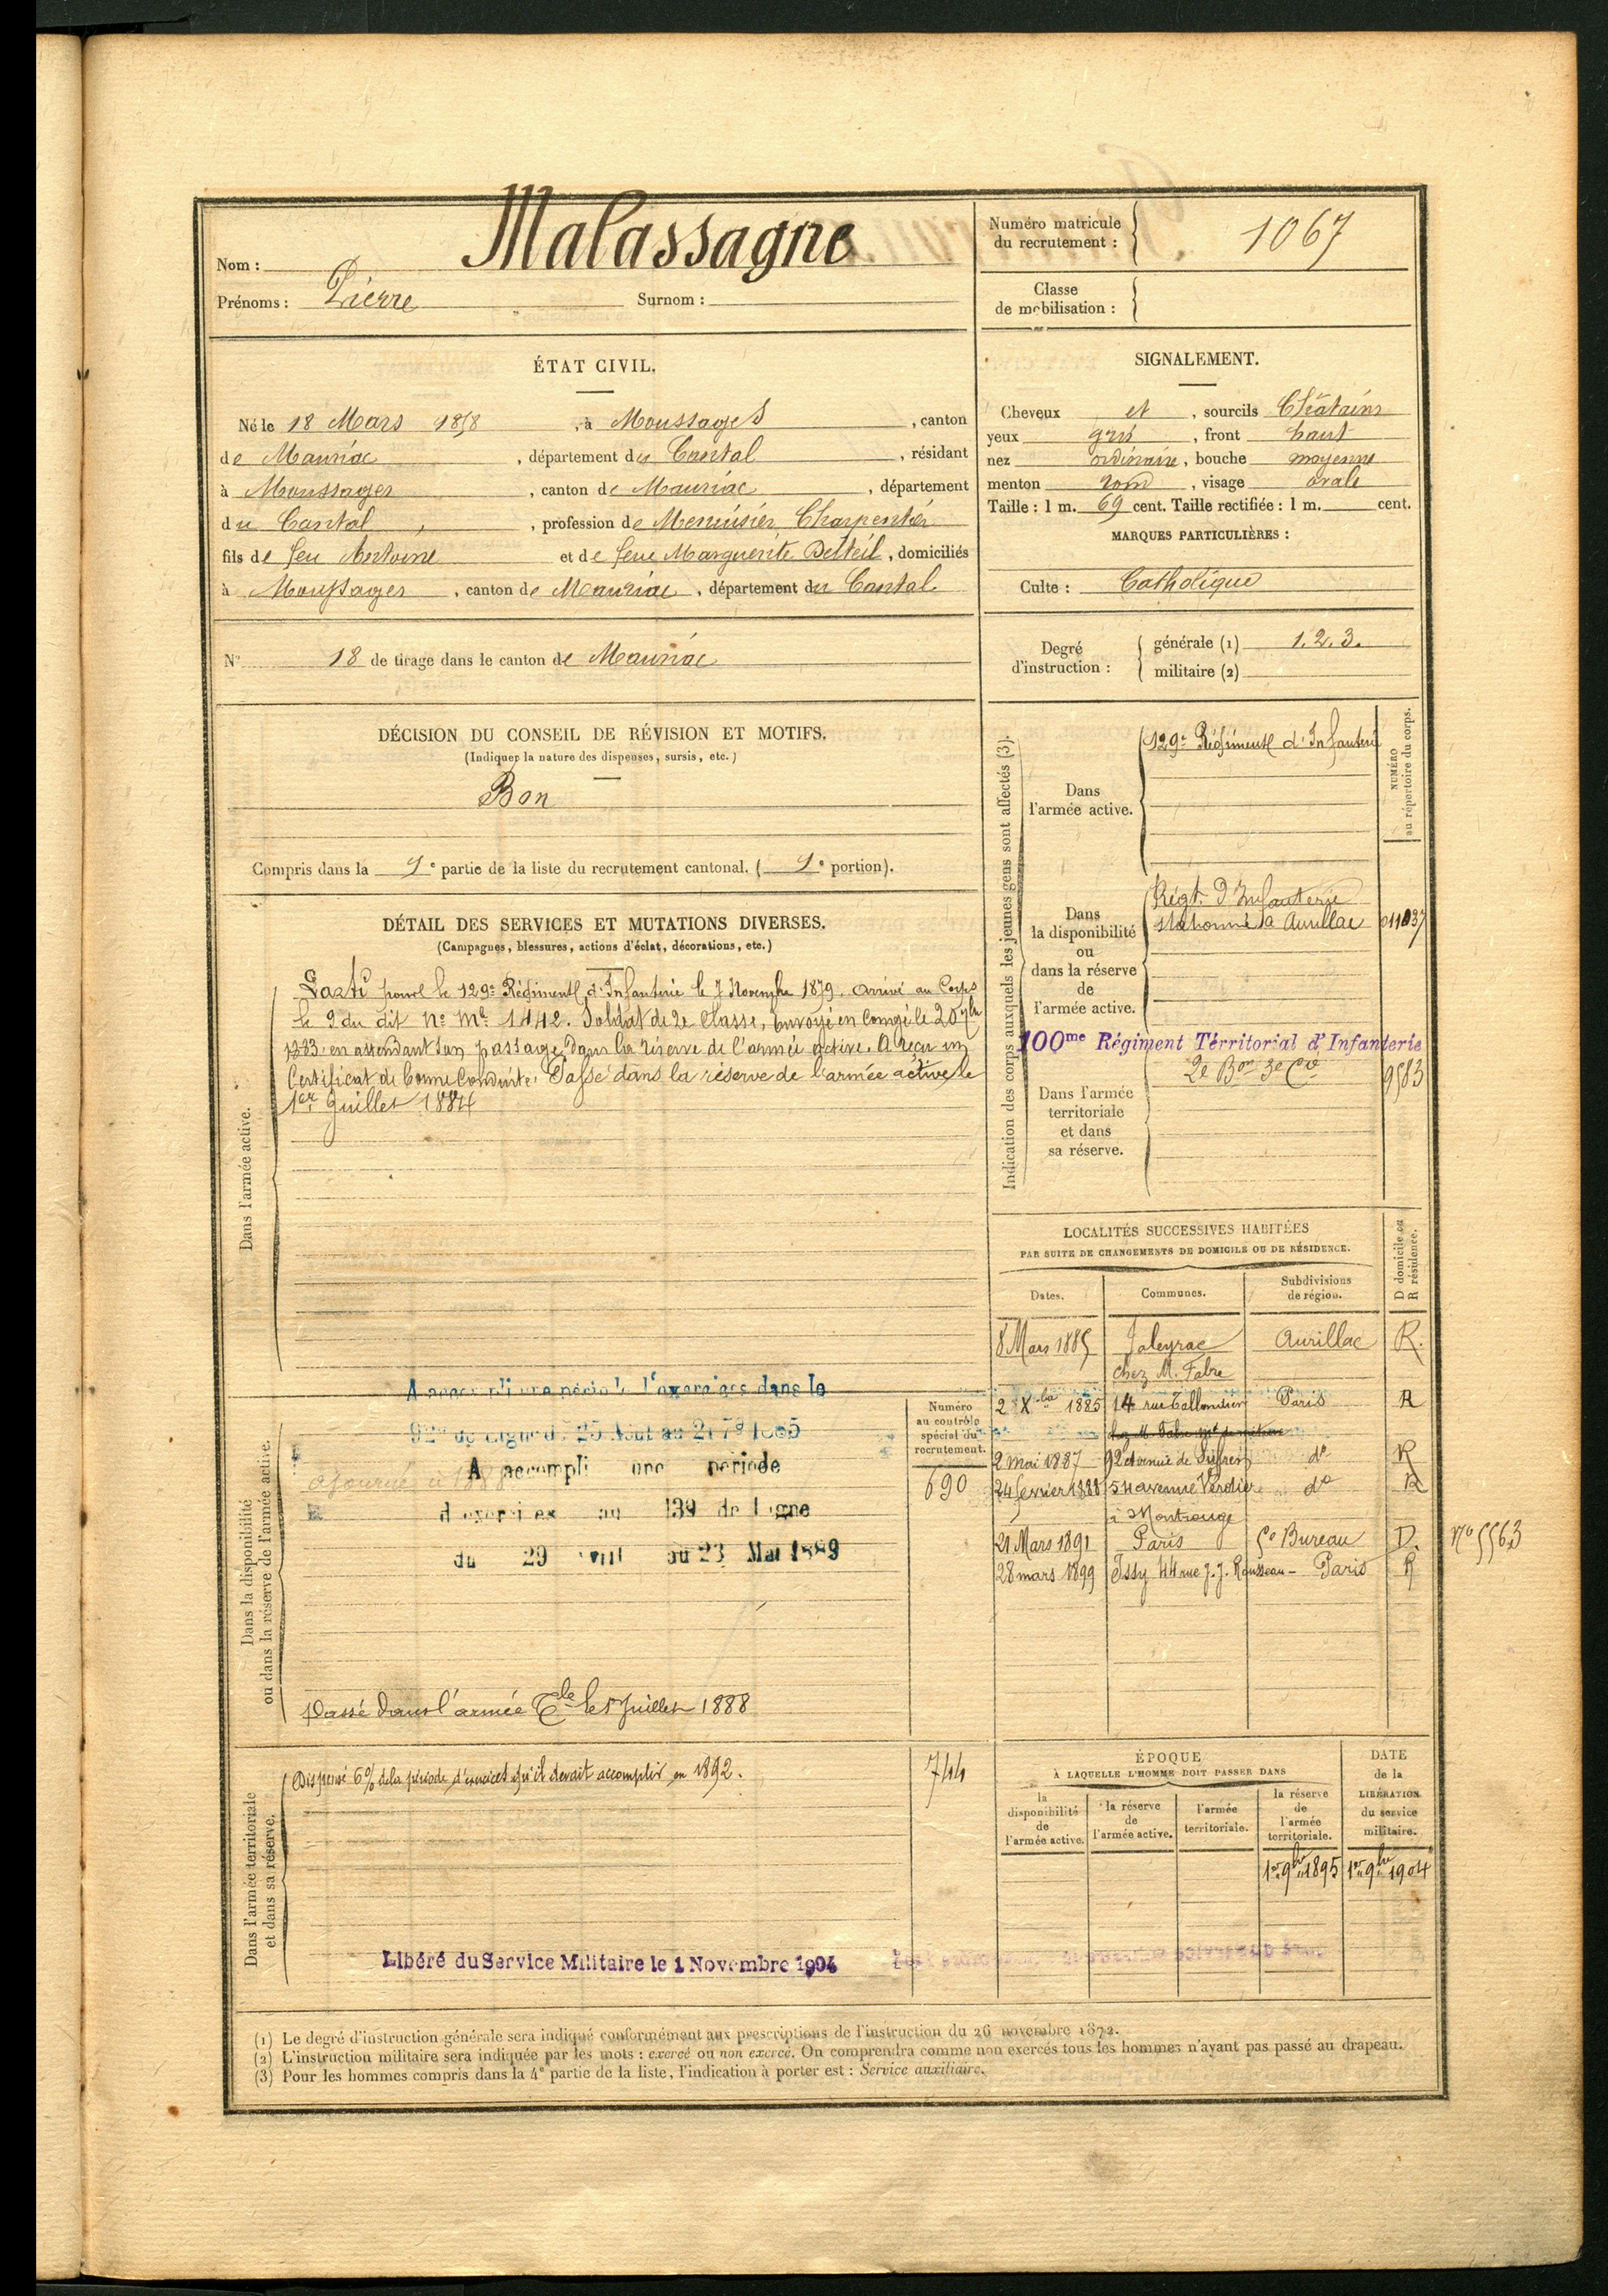 Nom : Malassagne
Prénoms : Pierre Surnom :
Numéro matricule du recrutement : 1067
Classe de mobilisation :
ÉTAT CIVIL.
Né le 18 Mars 1858, à Moussages, canton
de Mauriac, département du Cantal, résidant
à Moussages, canton de Mauriac, département
du Cantal, profession de Menuisier Charpentier
fils de feu Antoine et de feue Marguerite Delteil, domiciliés
à Moussages, canton de Mauriac, département du Cantal.
SIGNALEMENT.
Cheveux et, sourcils Châtains
yeux gris, front haut
nez ordinaire, bouche moyenne
menton rond, visage ovale
Taille : 1 m. 69 cent. Taille rectifiée : 1 m. cent.
MARQUES PARTICULIÈRES :
Culte : Catholique
N° 18 de tirage dans le canton de Mauriac
Degré d'instruction : générale (1) 1. 2. 3.
militaire (2)
DÉCISION DU CONSEIL DE RÉVISION ET MOTIFS.
(Indiquer la nature des dispenses, sursis, etc.)
Bon
Compris dans la 1e partie de la liste du recrutement cantonal. ( 1e portion).
Indication des corps auxquels les jeunes gens sont affectés (3).
NUMÉRO au répertoire du corps.
Dans l'armée active.
129e Régiment d'Infanterie
Dans la disponibilité ou dans la réserve de l'armée active.
Régt. d'Infanterie
stationné à Aurillac
100me Régiment Térritorial d'Infanterie
2e Bon 3e Cie
9583
Dans l'armée territoriale et dans sa réserve.
DÉTAIL DES SERVICES ET MUTATIONS DIVERSES.
(Campagnes, blessures, actions d'éclat, décorations, etc.)
Dans l'armée active.
Parti pour le 129e Régiment d'Infanterie le 7 Novembre 1879. Arrivé au Corps
le 9 du dit No Mle 1442. Soldat de 2e Classe, Envoyé en Congé le 20
1883 en attendant son passage dans la réserve de l'armée active. A reçu un
Certificat de bonne Conduite. Passé dans la réserve de l'armée active le
1er Juillet 1884
LOCALITÉS SUCCESSIVES HABITÉES
PAR SUITE DE CHANGEMENTS DE DOMICILE OU DE RÉSIDENCE.
Dates. Communes. Subdivisions de région. D domicile ou R résidence.
8 Mars 1885 Jaleyrac Aurillac R.
chez M. Fabre
2 Xbre 1885 14 rue Paris R
2 mai 1887 92 Avenue de Suffren do R
24 fevrier 1888 54 avenue Verdier do R
à Montrouge
21 Mars 1891 Paris 5e Bureau D. No 5563
28 mars 1899 Issy 44 rue J. J. Rousseau - Paris R
Dans la disponibilité ou dans la réserve de l'armée active.
Numéro au contrôle spécial du recrutement.
690
A accompli une période d'exercices dans le
92e de Ligne du 25 Aout au 21 7bre 1885
A accompli une période
d'exercices au 139 de Ligne
du 29 Avril au 23 Mai 1889
Passé dans l'armée Tle le 1er Juillet 1888
Dans l'armée territoriale et dans sa réserve.
Dispensé 6% de la période d'exercices qu'il devait accomplir en 1892.
744
Libéré du Service Militaire le 1 Novembre 1904
ÉPOQUE
À LAQUELLE L'HOMME DOIT PASSER DANS
DATE de la LIBÉRATION du service militaire.
la disponibilité de l'armée active.
la réserve de l'armée active.
l'armée territoriale.
la réserve de l'armée territoriale.
1er 9bre 1895 1er 9bre 1904
(1) Le degré d'instruction générale sera indiqué conformément aux prescriptions de l'instruction du 26 novembre 1872.
(2) L'instruction militaire sera indiquée par les mots : exercé ou non exercé. On comprendra comme non exercés tous les hommes n'ayant pas passé au drapeau.
(3) Pour les hommes compris dans la 4e partie de la liste, l'indication à porter est : Service auxiliaire.